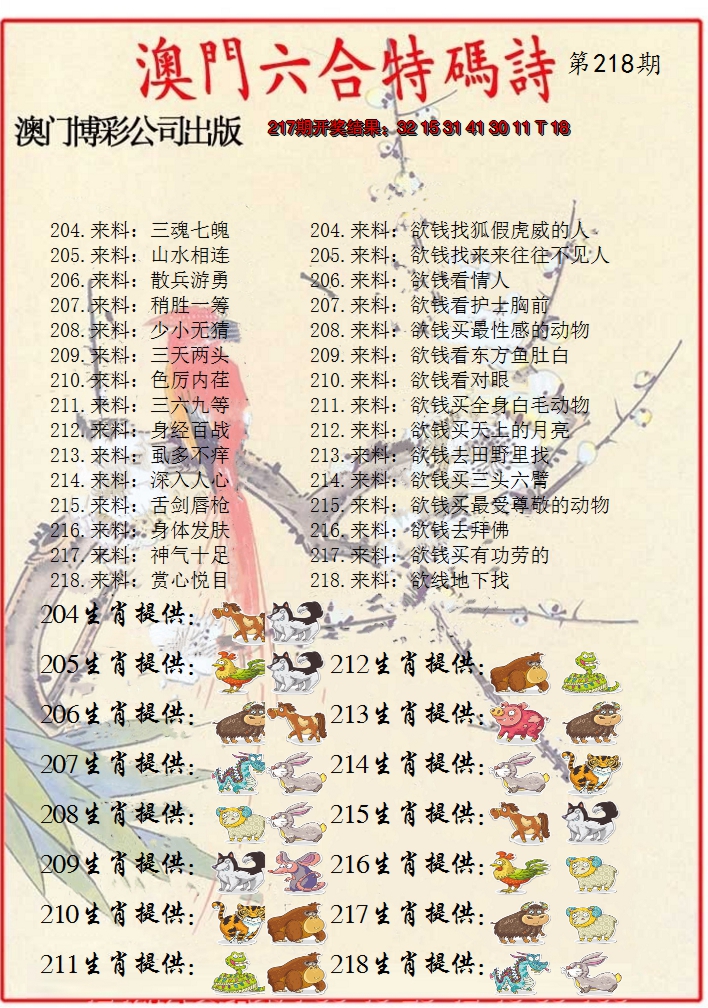 澳門六合特碼詩 第218期
澳门博彩公司出版 217期开奖结果：32 15 31 41 30 11 T 18
204.来料：三魂七魄 204.来料：欲钱找狐假虎威的人
205.来料：山水相连 205.来料：欲钱找来来往往不见人
206.来料：散兵游勇 206.来料：欲钱看情人
207.来料：稍胜一筹 207.来料：欲钱看护士胸前
208.来料：少小无猜 208.来料：欲钱买最性感的动物
209.来料：三天两头 209.来料：欲钱看东方鱼肚白
210.来料：色厉内荏 210.来料：欲钱看对眼
211.来料：三六九等 211.来料：欲钱买全身白毛动物
212.来料：身经百战 212.来料：欲钱买天上的月亮
213.来料：虱多不痒 213.来料：欲钱去田野里找
214.来料：深入人心 214.来料：欲钱买三头六臂
215.来料：舌剑唇枪 215.来料：欲钱买最受尊敬的动物
216.来料：身体发肤 216.来料：欲钱去拜佛
217.来料：神气十足 217.来料：欲钱买有功劳的
218.来料：赏心悦目 218.来料：欲线地下找
204生肖提供：
205生肖提供： 212生肖提供：
206生肖提供： 213生肖提供：
207生肖提供： 214生肖提供：
208生肖提供： 215生肖提供：
209生肖提供： 216生肖提供：
210生肖提供： 217生肖提供：
211生肖提供： 218生肖提供：